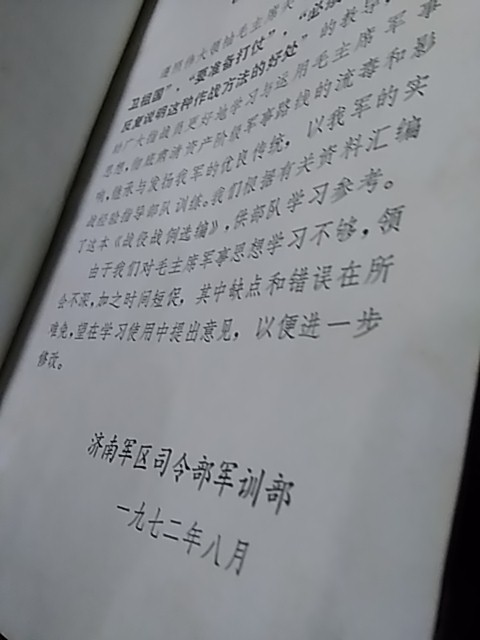 遵照伟大领袖毛主席关
卫祖国”，“要准备打仗”，“必须
反复说明这种作战方法的好处”的教导，
助广大指战员更好地学习与运用毛主席军事
思想，彻底肃清资产阶级军事路线的流毒和影
响，继承与发扬我军的优良传统，以我军的实
战经验指导部队训练。我们根据有关资料汇编
了这本《战役战例选编》，供部队学习参考。
由于我们对毛主席军事思想学习不够，领
会不深，加之时间短促，其中缺点和错误在所
难免，望在学习使用中提出意见，以便进一步
修改。
济南军区司令部军训部
一九七二年八月